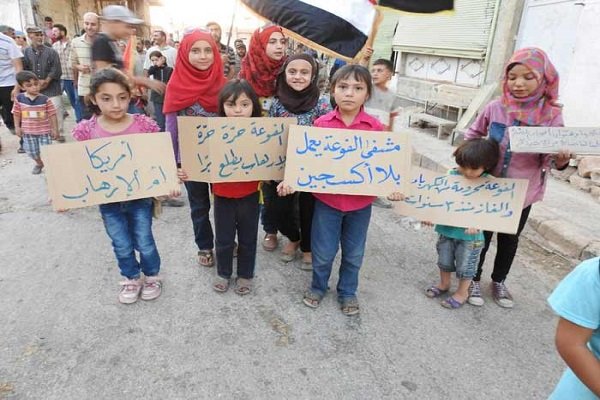 أمريكا
أم الإرهاب
الفوعة حرّة حرّة
لإرهاب يطلع برّا
مشفى الفوعة يعمل
بلا أكسجين
الفوعة محرومة من الكهرباء
والغاز منذ ٣ سنوات